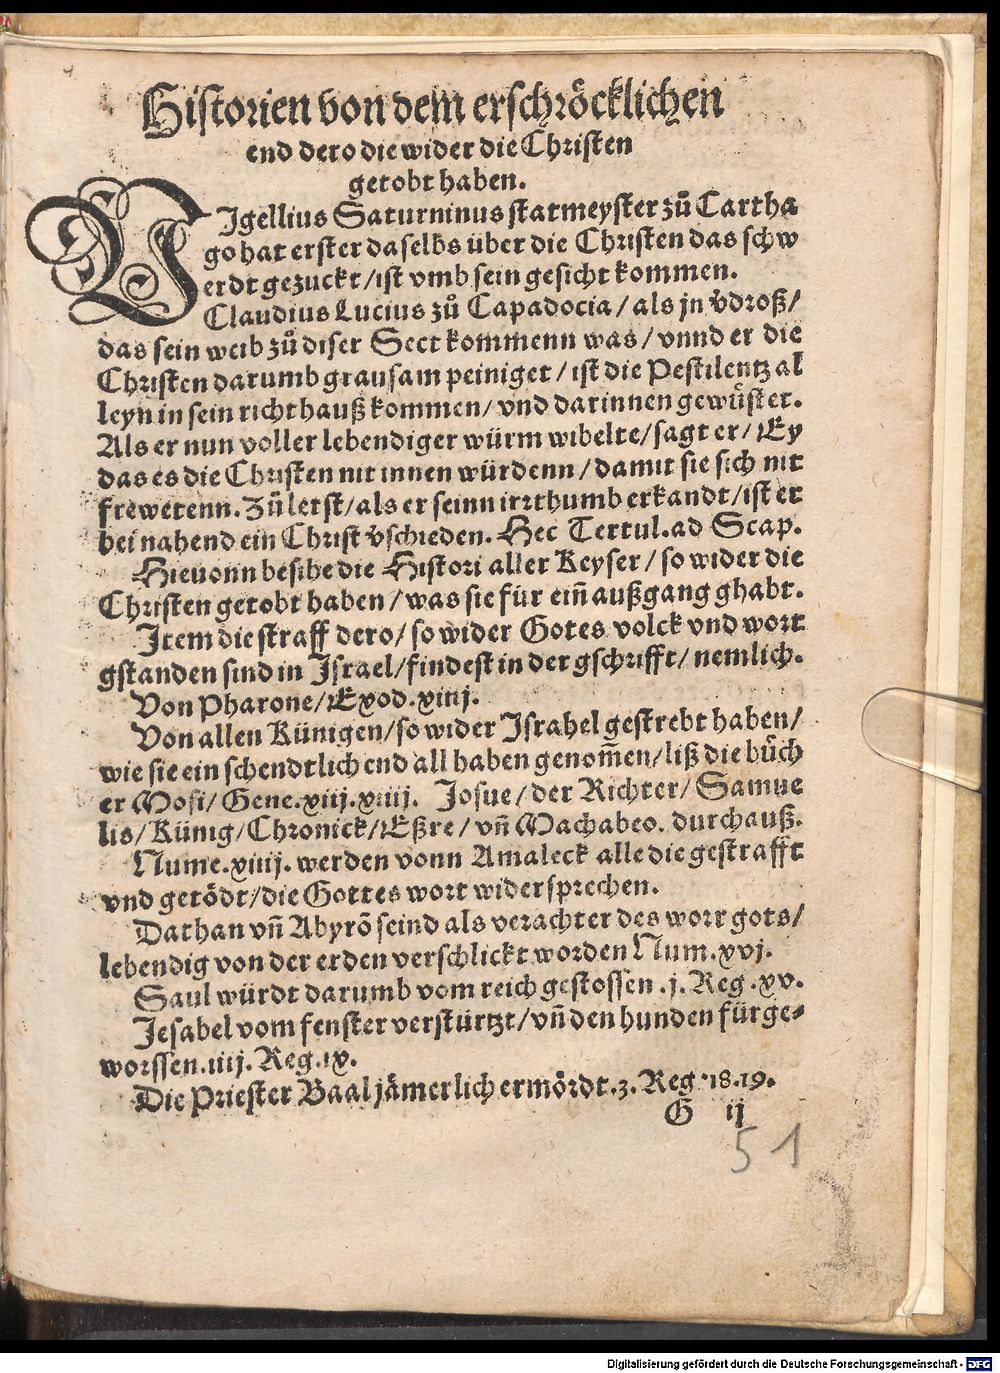 Historien von dem erschröcklichen
end dero die wider die Christen
getobt haben.
VIgellius Saturninus statmeyster zů Cartha
go hat erster daselbs über die Christen das schw
erdt gezuckt/ist vmb sein gesicht kommen.
Claudius Lucius zů Capadocia/als jn v̈droß/
das sein weib zů diser Sect kommenn was/vnnd er die
Christen darumb grausam peiniget/ist die Pestilentz al
leyn in sein richthauß kommen/vnd darinnen gewüstet.
Als er nun voller lebendiger würm wibelte/sagt er/Ey
das es die Christen nit innen würdenn/damit sie sich nit
frewetenn. Zů letst/als er seinn irrthumb erkandt/ist er
bei nahend ein Christ v̈schieden. Hec Tertul. ad Scap.
Hieuonn besihe die Histori aller Keyser/so wider die
Christen getobt haben/was sie für eiñ außgang ghabt.
Item die straff dero/so wider Gotes volck vnd wort
gstanden sind in Israel/findest in der gschrifft/nemlich.
Von Pharone/Exod.xiiij.
Von allen Künigen/so wider Israhel gestrebt haben/
wie sie ein schendtlich end all haben genom̃en/liß die bůch
er Mosi/Gene.xiij.xiiij. Josue/der Richter/Samue
lis/Künig/Chronick/Eßre/vñ Machabeo. durchauß.
Nume.xiiij. werden vonn Amaleck alle die gestrafft
vnd getödt/die Gottes wort widersprechen.
Dathan vñ Abyrõ seind als verachter des wort gots/
lebendig von der erden verschlickt worden Num.xvj.
Saul würdt darumb vom reich gestossen.j.Reg.xv.
Jesabel vom fenster verstürtzt/vñ den hunden fürge⸗
worffen.iiij.Reg.ix.
Die Priester Baal jämerlich ermördt.3.Reg.18.19.
G ij
51
Digitalisierung gefördert durch die Deutsche Forschungsgemeinschaft - DFG